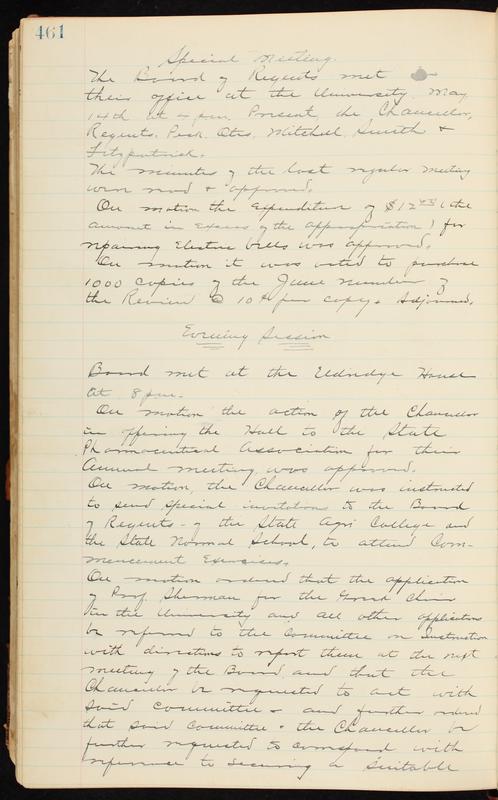 461
Special Meeting.
The Board of Regents met
their office at the University, May
14th at 4 p.m. Present, the Chancellor,
Regents. Peck, Otis, Mitchell, Smith &
Fitzpatrick.
The minutes of the last regular meeting
were read & approved.
On motion the Expenditure of $12 (the
amount in excess of the appropriation) for
repairing Electric bells was approved.
On motion it was voted to purchase
1000 copies of the June number of
the Review @ 10¢ per copy. Adjourned.
Evening Session
Board met at the Eldridge House
at 8 p.m.
On motion the action of the Chancellor
in offering the Hall to the State
Pharmaceutical Association for their
Annual meeting was approved.
On motion, the Chancellor was instructed
to send special invitations to the Board
of Regents - of the State Agri College and
the State Normal School, to attend Com-
mencement Exercises.
On motion ordered that the application
of Prof. Sherman for the Greek Chair
in the University and all other applications
be referred to the Committee on Instruction
with directions to report them at the next
meeting of the Board, and that the
Chancellor be requested to act with
said Committee & and further ordered
that said Committee & the Chancellor be
further requested to correspond with
reference to securing a suitable